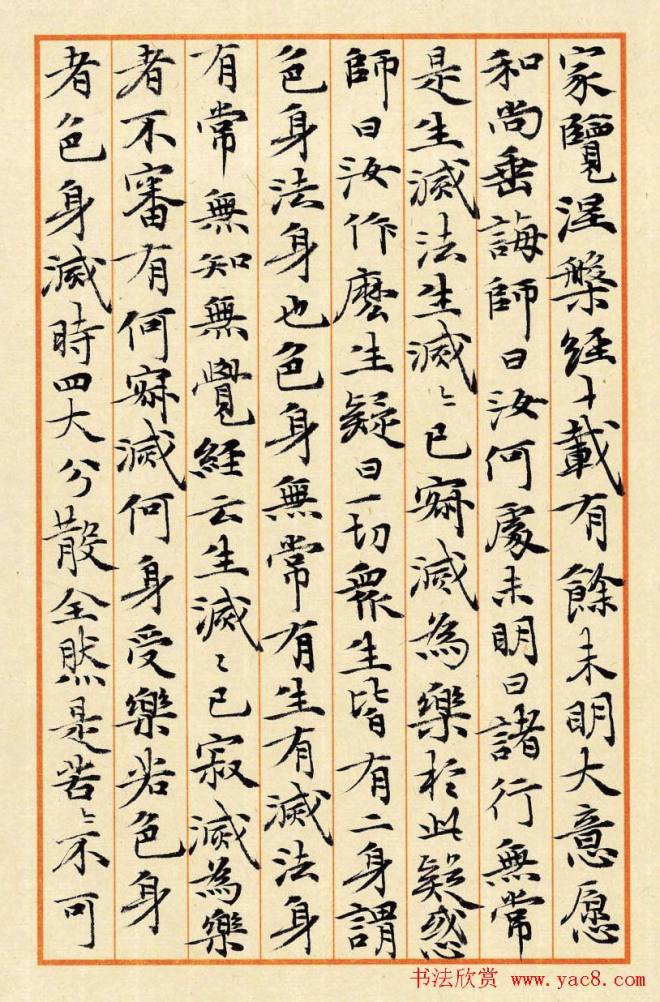 家覽涅槃經十載有餘未明大意愿
和尚垂誨師曰汝何處未明曰諸行無常
是生滅法生滅〻已寂滅為樂於此疑惑
師曰汝作麼生疑曰一切衆生皆有二身謂
色身法身也色身無常有生有滅法身
有常無知無覺經云生滅〻已寂滅為樂
者不審有何寂滅何身受樂若色身
者色身滅時四大分散全然是苦〻不可
书法欣赏 www.yac8.com